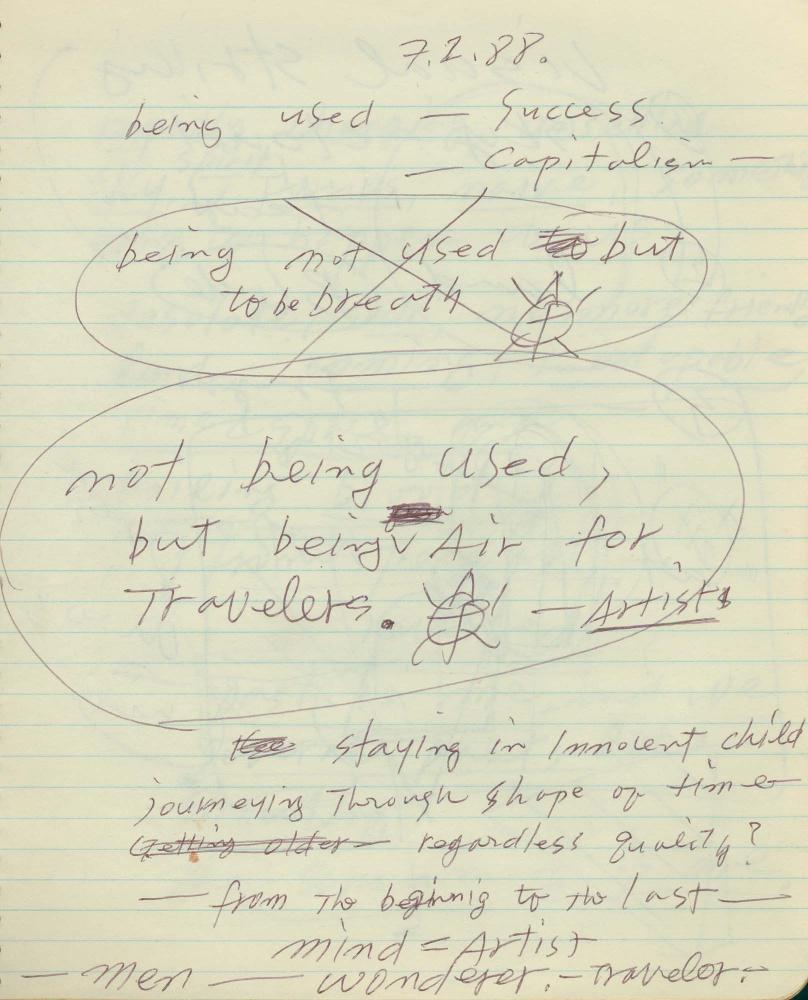 7.2.88.
being used — Success
— Capitalism —
being not used to but
to be breath
not being used,
but being Air for
Travelers. — Artists
staying in Innocent child
journeying Through shape of time
Getting older regardless quality?
— from The beginnig to The last —
mind = Artist
— men — wonderer. — Traveler. —